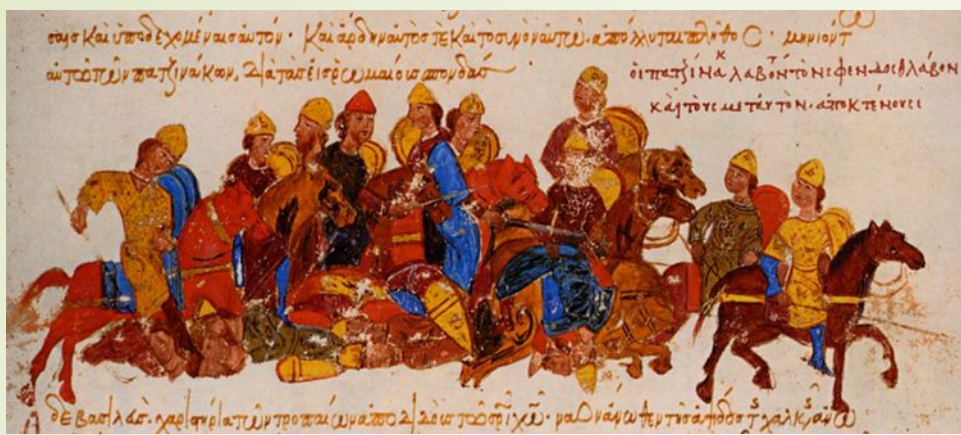 σαισ καὶ ὑποδεχομέναισ αὐτόν· καὶ ἄρδην αὐτόσ τε καὶ τὸ συνὸν αὐτῶ ἀπόλλυται πλῆθοσ· μηνιόντ
αὐτῶ τῶν πατζινάκων, διὰ τὰσ εἰσ ῥωμαίουσ σπονδάσ
οἱ πατζινακ λαβόντ τὸν σφενδοσθλάβον
καὶ τοὺσ μετ αὐτὸν. ἀποκτένουσι
δὲ βασιλεὺσ· χαριστήρια τῶν τροπαίων ἀποδιδοὺσ τῶ χω· ναὸν ἄνωθεν τῆσ ἀψῖδοσ τ χαλκ